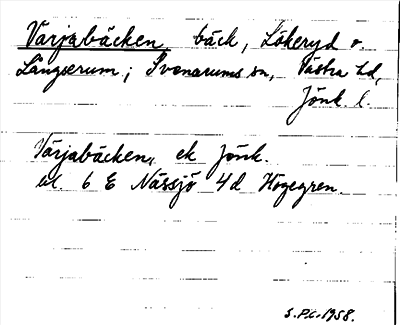 Värjabäcken bäck, Lökeryd o.
Långserum; Svenarums sn, Västra hd,
Jönk l.
Värjabäcken, ek Jönk.
bl. 6 E Nässjö 4d Högegren.
S.P.C. 1958.